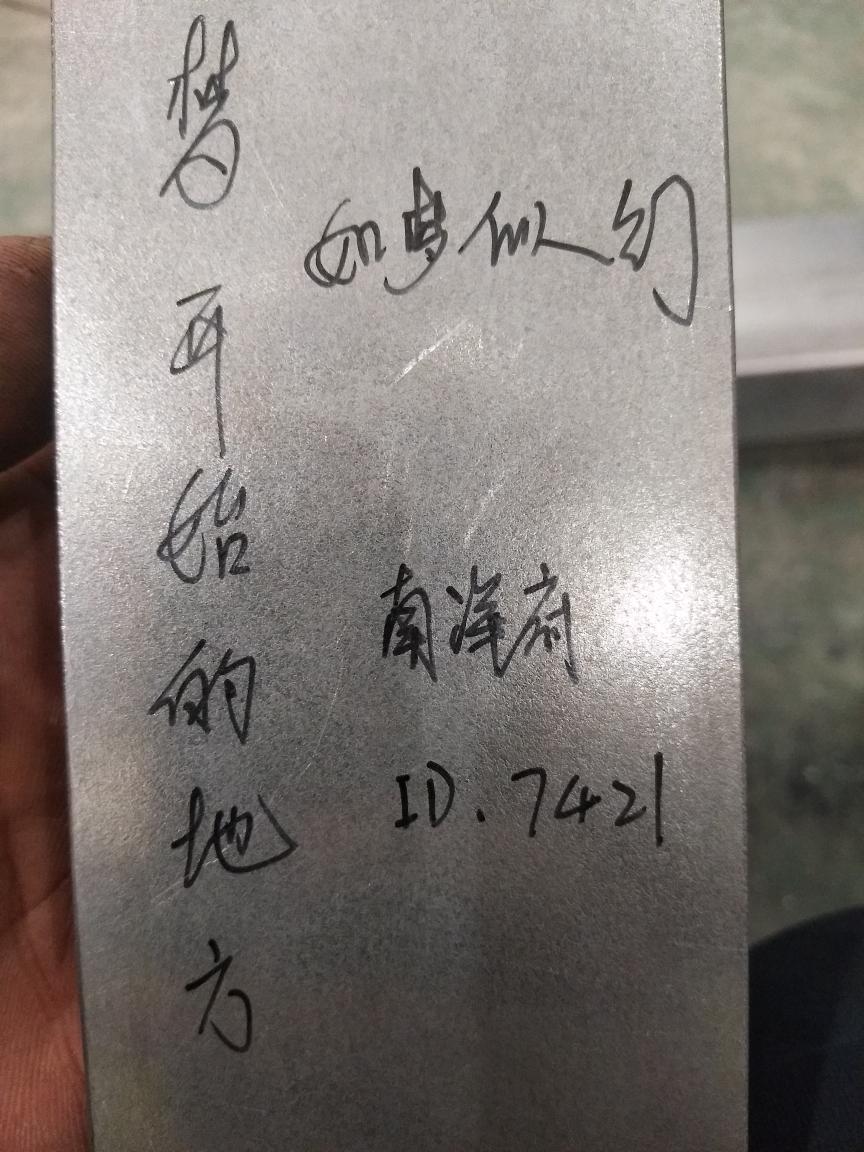 梦开始的地方
如梦似幻
南洋府
ID.7421